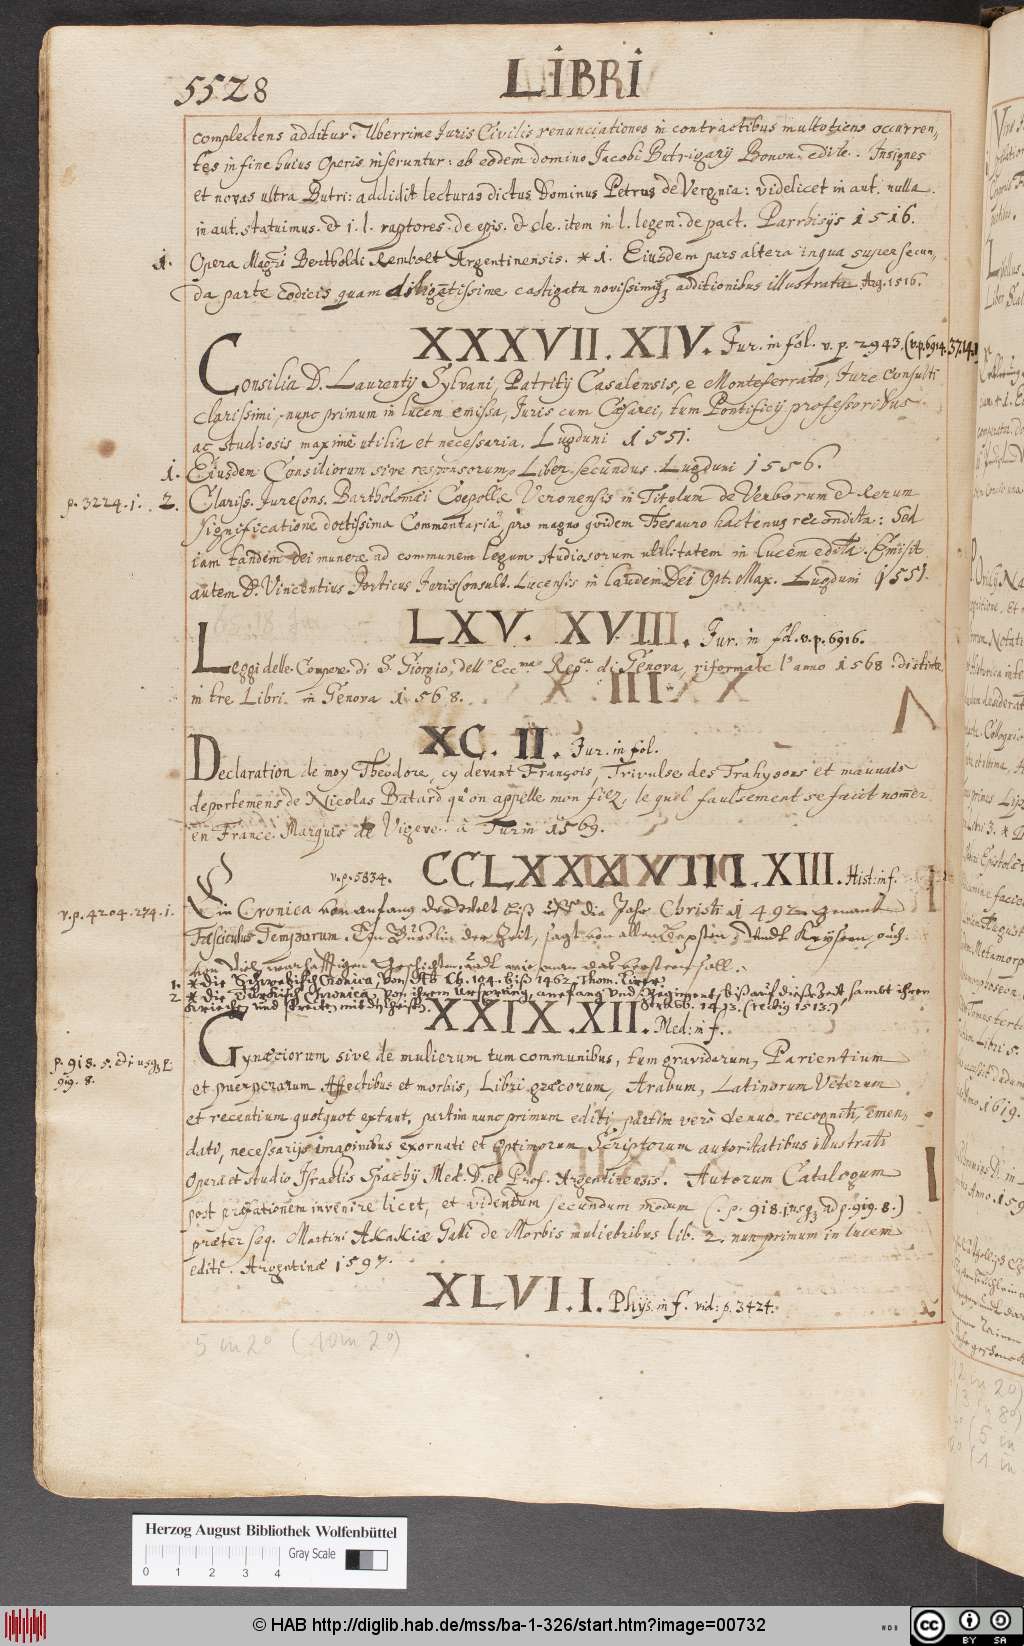 5528
LIBRI
complectens additur. Uberrime Juris Civilis renunciationes in contractibus multotiens occurren,
tes in fine huius operis inseruntur: ab eodem domino Jacobi Butrigarij Bonon. edite. Insignes
et novas ultra Butri: addidit lecturas dictus Dominus Petrus de : videlicet in aut. nulla.
in aut. statuimus. et i. l. raptores. de epis. & cle. item in l. legem. de pact. Parrhisijs 1516.
1. Opera Magri Bertholdi Rembolt Argentinensis. * 1. Eiusdem pars altera in qua super secun,
da parte codicis quam diligētissime castigata novissimisq3 additionibus illustrata Aug. 1516.
XXXVII. XIV. Jur. in fol. v. p. 2943. (v.p. 6914. 3724.)
Consilia D. Laurentij Sylvani, Patritij Casalensis, e Monteferrato, Jure consulti
clarissimi, nunc primum in lucem emissa, Juris cum Cæsarei, tum Pontificij professoribus
ac studiosis maxime utilia et necessaria. Lugduni 1551.
1. Eiusdem Consiliorum sive responsorum Liber secundus. Lugduni 1556.
p. 3224. 1. 2. Clariss. Jurecons. Bartholomæi Coepollæ Veronensis in Titulum de Verborum & Rerum
significatione doctissima Commentaria, pro magno quidem Thesauro hactenus recondita: Sed
iam tandem Dei munere ad communem legum studiosorum utilitatem in lucem edita. Emisit
autem D. Vincentius Porticus Jurisconsult. Lucensis in laudem Dei Opt. Max. Lugduni 1551.
LXV. XVIII. Jur. in fol. v. p. 6916.
Leggi delle Compere di S. Giorgio, dell' Eccma Repca di Genova, riformate l'anno 1568. distinte
in tre Libri. in Genova 1568.
XC. II. Jur. in fol.
Declaration de moy Theodore, cy devant François, Trivulse des Trahysons et mauvais
deportemens de Nicolas Batard qu'on appelle mon filz, le quel faulsement se faict nomer
en France Marquis de Vigeve. à Turin 1569.
v. p. 5834. CCLXXXXVIII. XIII. Hist: in f.
v. p. 4204. 274. 1. Ein Cronica von anfang der Welt biß uff die Jahr Christi 1492. genant
Fasciculus Temporum. Ein Bürdlin der Zeit, sagt von allen Bepsten, Undt Keysern, auch
von viel warhafftigen Geschichten, undt wie man das verstehen soll.
1. * die Schwebisch Cronica, von Ao Ch. 104. biß 1462. Thom. Lirer.
2. * die Türckisch Chronica, von ihrem Ursprung anefang und Regiment, biß auf dieße Zeit, sambt ihren
Kriechen und streiten mit dē Christē. Strasb. 1493. (1513.)
XXIX. XII. Med: in f.
p. 918. 5. Edi: usq3 p:
919. 8. Gynæciorum sive de mulierum tum communibus, tum gravidarum, Parientium
et puerperarum Affectibus et morbis, Libri græcorum, Arabum, Latinorum Veterum
et recentium quotquot extant, partim nunc primum editi, partim vero denuo recogniti, emen,
dati, necessarijs imaginibus exornati et optimorum Scriptorum autoritatibus illustrati
Opera et studio Israelis Spachij Med. D. et Prof. Argentinensis. Autorum Catalogum
post præfationem invenire licet, et videntum secundum modum (. p. 918. 1 usq3 ad p. 919. 8.)
præter seq. Martini Akakiæ Galli de Morbis muliebribus lib. 2. nunc primum in lucem
editi. Argentinæ 1597.
XLVII. I. Phys. in f. vid: p. 3424.
5 in 2° (10 in 2°)
Herzog August Bibliothek Wolfenbüttel
Gray Scale
0 1 2 3 4
© HAB http://diglib.hab.de/mss/ba-1-326/start.htm?image=00732
cc BY SA